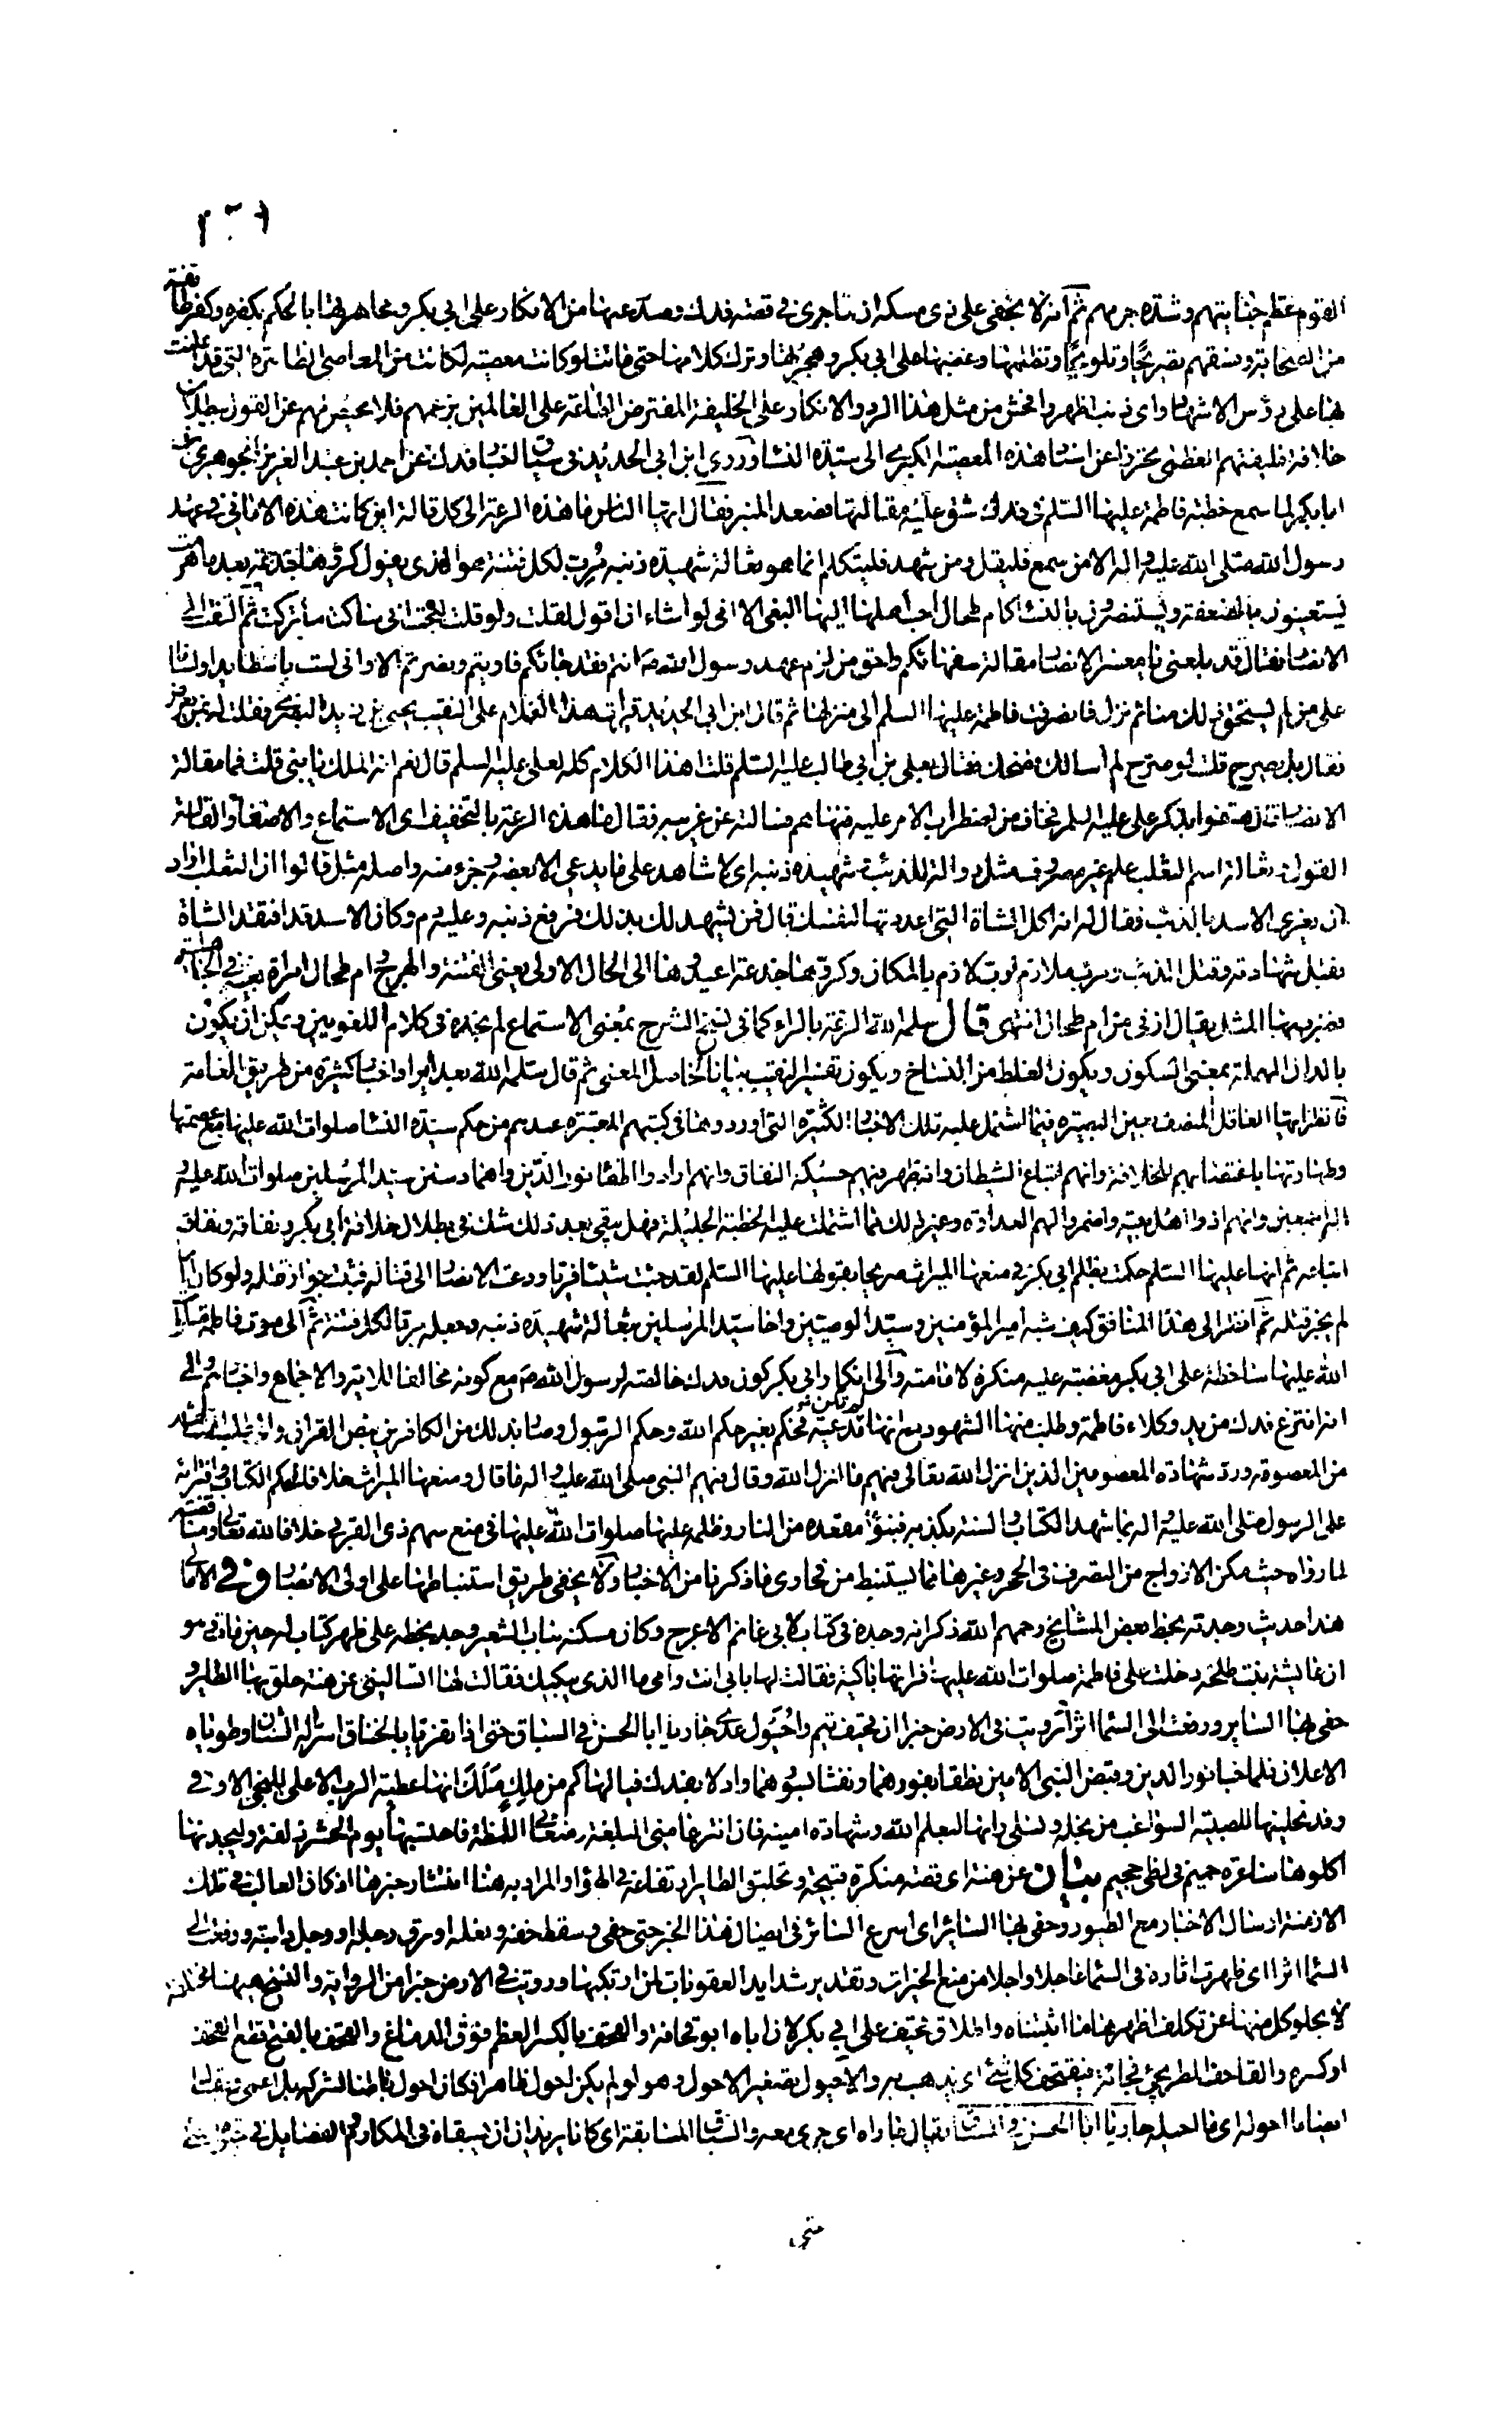 القوم عظم جنايتهم وشدة جرمهم ثم انه لا يخفى على ذي مسكة ان ما جرى في قصة فدك وصدر عنها من الانكار على ابي بكر ومجاهرتها بالحكم بكفره وكفر طائفة
من الصحابة وفسقهم تصريحا وتلويحا وتظلمها وغضبها على ابي بكر وهجرتها وترك كلامها حتى ماتت لو كانت معصية لكانت من المعاصي الظاهرة التي قد اعلنت
بها على رؤس الاشهاد واي ذنب اظهر وافحش من مثل هذا الرد والانكار على الخليفة المفترض الطاعة على العالمين بزعمهم فلا محيص لهم عن القول ببطلان
خلافة خليفتهم العظمى تحرزا عن اسناد هذه المعصية الكبرى الى سيدة النساء وروى ابن ابي الحديد في سياق اخبار فدك عن احمد بن عبد العزيز الجوهري ان
ابا بكر لما سمع خطبة فاطمة عليها السلم في فدك شق عليه مقالتها فصعد المنبر فقال ايها الناس ما هذه الرعة الى كل قالة اين كانت هذه الاماني في عهد
رسول الله صلى الله عليه واله الا من سمع فليقل ومن شهد فليتكلم انما هو ثعالة شهيده ذنبه مرب لكل فتنة هو الذي يقول كروها جذعة بعد ما هرمت
يستعينون بالضعفة ويستنصرون بالنساء كام طحال احب اهلها اليها البغي الا اني لو اشاء ان اقول لقلت ولو قلت لبحت اني ساكت ما تركت ثم التفت الى
الانصار فقال قد بلغني يا معشر الانصار مقالة سفهائكم واحق من لزم عهد رسول الله ص انتم فقد جائكم فاويتم ونصرتم الا واني لست باسطا يدا ولسانا
على من لم يستحق ذلك منا ثم نزل فانصرفت فاطمة عليها السلم الى منزلها ثم قال ابن ابي الحديد قرأت هذا الكلام على النقيب يحيى بن زيد البصري فقلت له بمن يعرض
فقال بل يصرح قلت لو صرح لم أسالك فضحك وقال بعلي بن ابي طالب عليه السلم قلت اهذا الكلام كله لعلي عليه السلم قال نعم انه الملك يا بني قلت فما مقالة
الانصار قال هتفوا بذكر علي عليه السلم فخاف من اضطراب الامر عليه فنهاهم فسالته عن غريبه فقال ما هذه الرعة بالتخفيف اي الاستماع والاصغاء والقالة
القول وثعالة اسم الثعلب علم غير مصروف مثل ذوالة للذئب وشهيده ذنبه اي لا شاهد على ما يدعي الا بعضه وجزء منه واصله مثل قالوا ان الثعلب اراد
ان يغري الاسد بالذئب فقال له انه اكل الشاة التي اعددتها لنفسك قال فمن يشهد لك بذلك فرفع ذنبه وعليه دم وكان الاسد قد افتقد الشاة
فقبل شهادته وقتل الذئب ومرب ملازم لرب لازم بالمكان وكروها جذعة اعيدوها الى الحال الاولى يعني الفتنة والهرج وام طحال امراة بغي في الجاهلية
فضرب بها المثل يقال ازنى من ام طحال انتهى قال سلمه الله الرعة بالراء كما في نسخ الشرح بمعنى الاستماع لم نجده في كلام اللغويين ويمكن ان يكون
بالدال المهملة بمعنى السكون ويكون الغلط من النساخ ويكون تفسير النقيب بيانا لحاصل المعنى ثم قال سلمه الله بعد ايراد اخبار كثيرة من طريق العامة
فانظر ايها العاقل المنصف بعين البصيرة فيما اشتمل عليه تلك الاخبار الكثيرة التي اوردوها في كتبهم المعتبرة عندهم من حكم سيدة النساء صلوات الله عليها مع عصمتها
وطهارتها باغتصابهم للخلافة وانهم اتباع الشيطان وانه ظهر فيهم حسيكة النفاق وانهم ارادوا اطفاء نور الدين واهماد سنن سيد المرسلين صلوات الله عليه و
اله اجمعين وانهم اذوا اهل بيته واضمروا لهم العداوة وغير ذلك مما اشتملت عليه الخطبة الجليلة فهل يبقى بعد ذلك شك في بطلان خلافة ابي بكر ونفاقه ونفاق
اتباعه ثم انها عليها السلم حكمت بظلم ابي بكر في منعها الميراث صريحا بقولها عليها السلم لقد جئت شيئا فريا ودعت الانصار الى قتاله فثبت جواز قتله ولو كان اماما
لم يجز قتله ثم انظر الى هذا المنافق كيف شبه امير المؤمنين وسيد الوصيين واخا سيد المرسلين بثعالة شهيده ذنبه وجعله مربا لكل فتنة ثم الى موت فاطمة صلوات
الله عليها ساخطة على ابي بكر مغضبة عليه منكرة لامامته والى انكار ابي بكر كون فدك خالصة لرسول الله ص مع كونه مخالفا للاية والاجماع واخبارهم والى
انه انتزع فدك من يد وكلاء فاطمة وطلب منها الشهود مع انها لم تكن مدعية فحكم بغير حكم الله وحكم الرسول وصار بذلك من الكافرين بنص القران والى طلب الشاهد
من المعصومة ورد شهادة المعصومين الذين انزل الله تعالى فيهم ما انزل الله وقال فيهم النبي صلى الله عليه واله ما قال ومنعها الميراث خلافا لحكم الكتاب وافترائه
على الرسول صلى الله عليه واله بما شهد الكتاب والسنة بكذبه فتبوأ مقعده من النار وظلمه عليها صلوات الله عليها في منع سهم ذي القربى خلافا لله تعالى ومناقضته
لما رواه حيث مكن الازواج من التصرف في الحجر وغيرها مما يستنبط من فحاوى ما ذكرنا من الاخبار ولا يخفى طريق استنباطها على اولي الابصار وفي الامالي
هذا حديث وجدته بخط بعض المشايخ رحمهم الله ذكر انه وجده في كتاب لابي غانم الاعرج وكان مسكنه بباب الشعير وجد بخطه على ظهر كتاب له حين مات وهو
ان عايشة بنت طلحة دخلت على فاطمة صلوات الله عليها فراتها باكية فقالت لها بابي انت وامي ما الذي يبكيك فقالت لها اسائلتي عن هنة حلق بها الطاير و
حفي بها الساير ورفعت الى السماء اثرا ورويت في الارض خبرا ان قحيف تيم واحيول عدي جاريا ابا الحسن في السباق حتى اذا تفريا بالخناق اسرا له الشنان وطوياه
الاعلان فلما خبا نور الدين وقبض النبي الامين نطقا بفورهما ونفثا بسورهما وادلا بفدك فيالها كم من ملك ملك انها عطية الرب الاعلى للنجي الاوفى
ولقد نحلنيها للصبية السواغب من نجله ونسلي وانها لبعلم الله وشهادة امينه فان انتزعا مني البلغة ومنعاني اللمظة فاحتسبها يوم الحشر زلفة وليجدنها
اكلوها ساعرة حميم في لظى جحيم بيان عن هنة اي قصة منكرة قبيحة وتحليق الطاير ارتفاعه في الهواء والمراد به هنا انتشار خبرها اذ كان الغالب في تلك
الازمنة ارسال الاخبار مع الطيور وحفى بها الساير اي اسرع السائر في ايصال هذا الخبر حتى حفي وسقط خفه ونعله او رق رجله او رجل دابته ورفعت الى
السماء اثرا اي ظهرت اثاره في السماء عاجلا واجلا من منع الخيرات وتقدير شدايد العقوبات لمن ارتكبها ورويت في الارض خبرا من الرواية والنسخ هيهنا مختلفة
لا يخلو كل منها عن تكلف اظهرها ما اثبتناه واطلاق قحيف على ابي بكر لان اباه ابو قحافة والقحف بالكسر العظم فوق الدماغ والقحف بالفتح قطع القحف
او كسره والقاحف المطر يجئ فجائة فيقتحف كل شئ اي يذهب به والاحيول تصغير الاحول وهو لو لم يكن احول ظاهرا فكان احول باطنا لشركه بل اعمى ويقال
ايضا ما احوله اي ما احيله جاريا ابا الحسن في السباق يقال جاراه اي جرى معه والسباق المسابقة اي كانا يريدان ان يسبقاه في المكارم والفضايل في حيوة النبي
متى